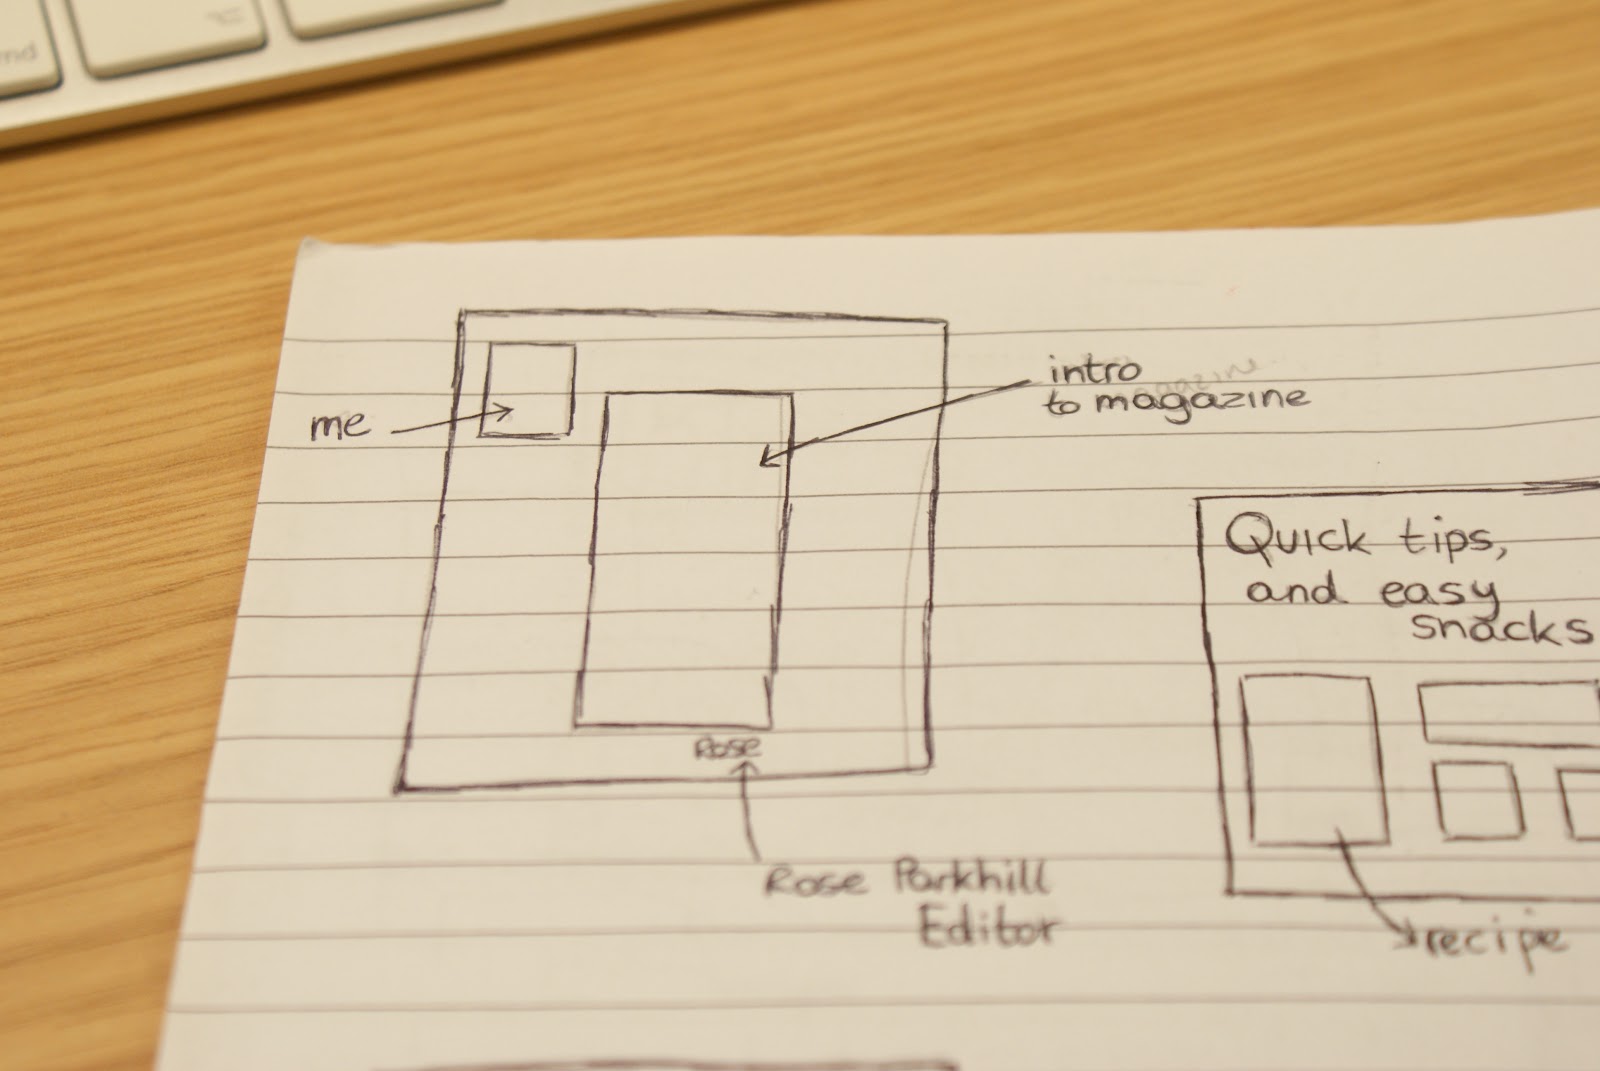 md
me
intro
to magazine
magazine
Rose
Rose Parkhill
Editor
Quick tips,
and easy
snacks
recipe